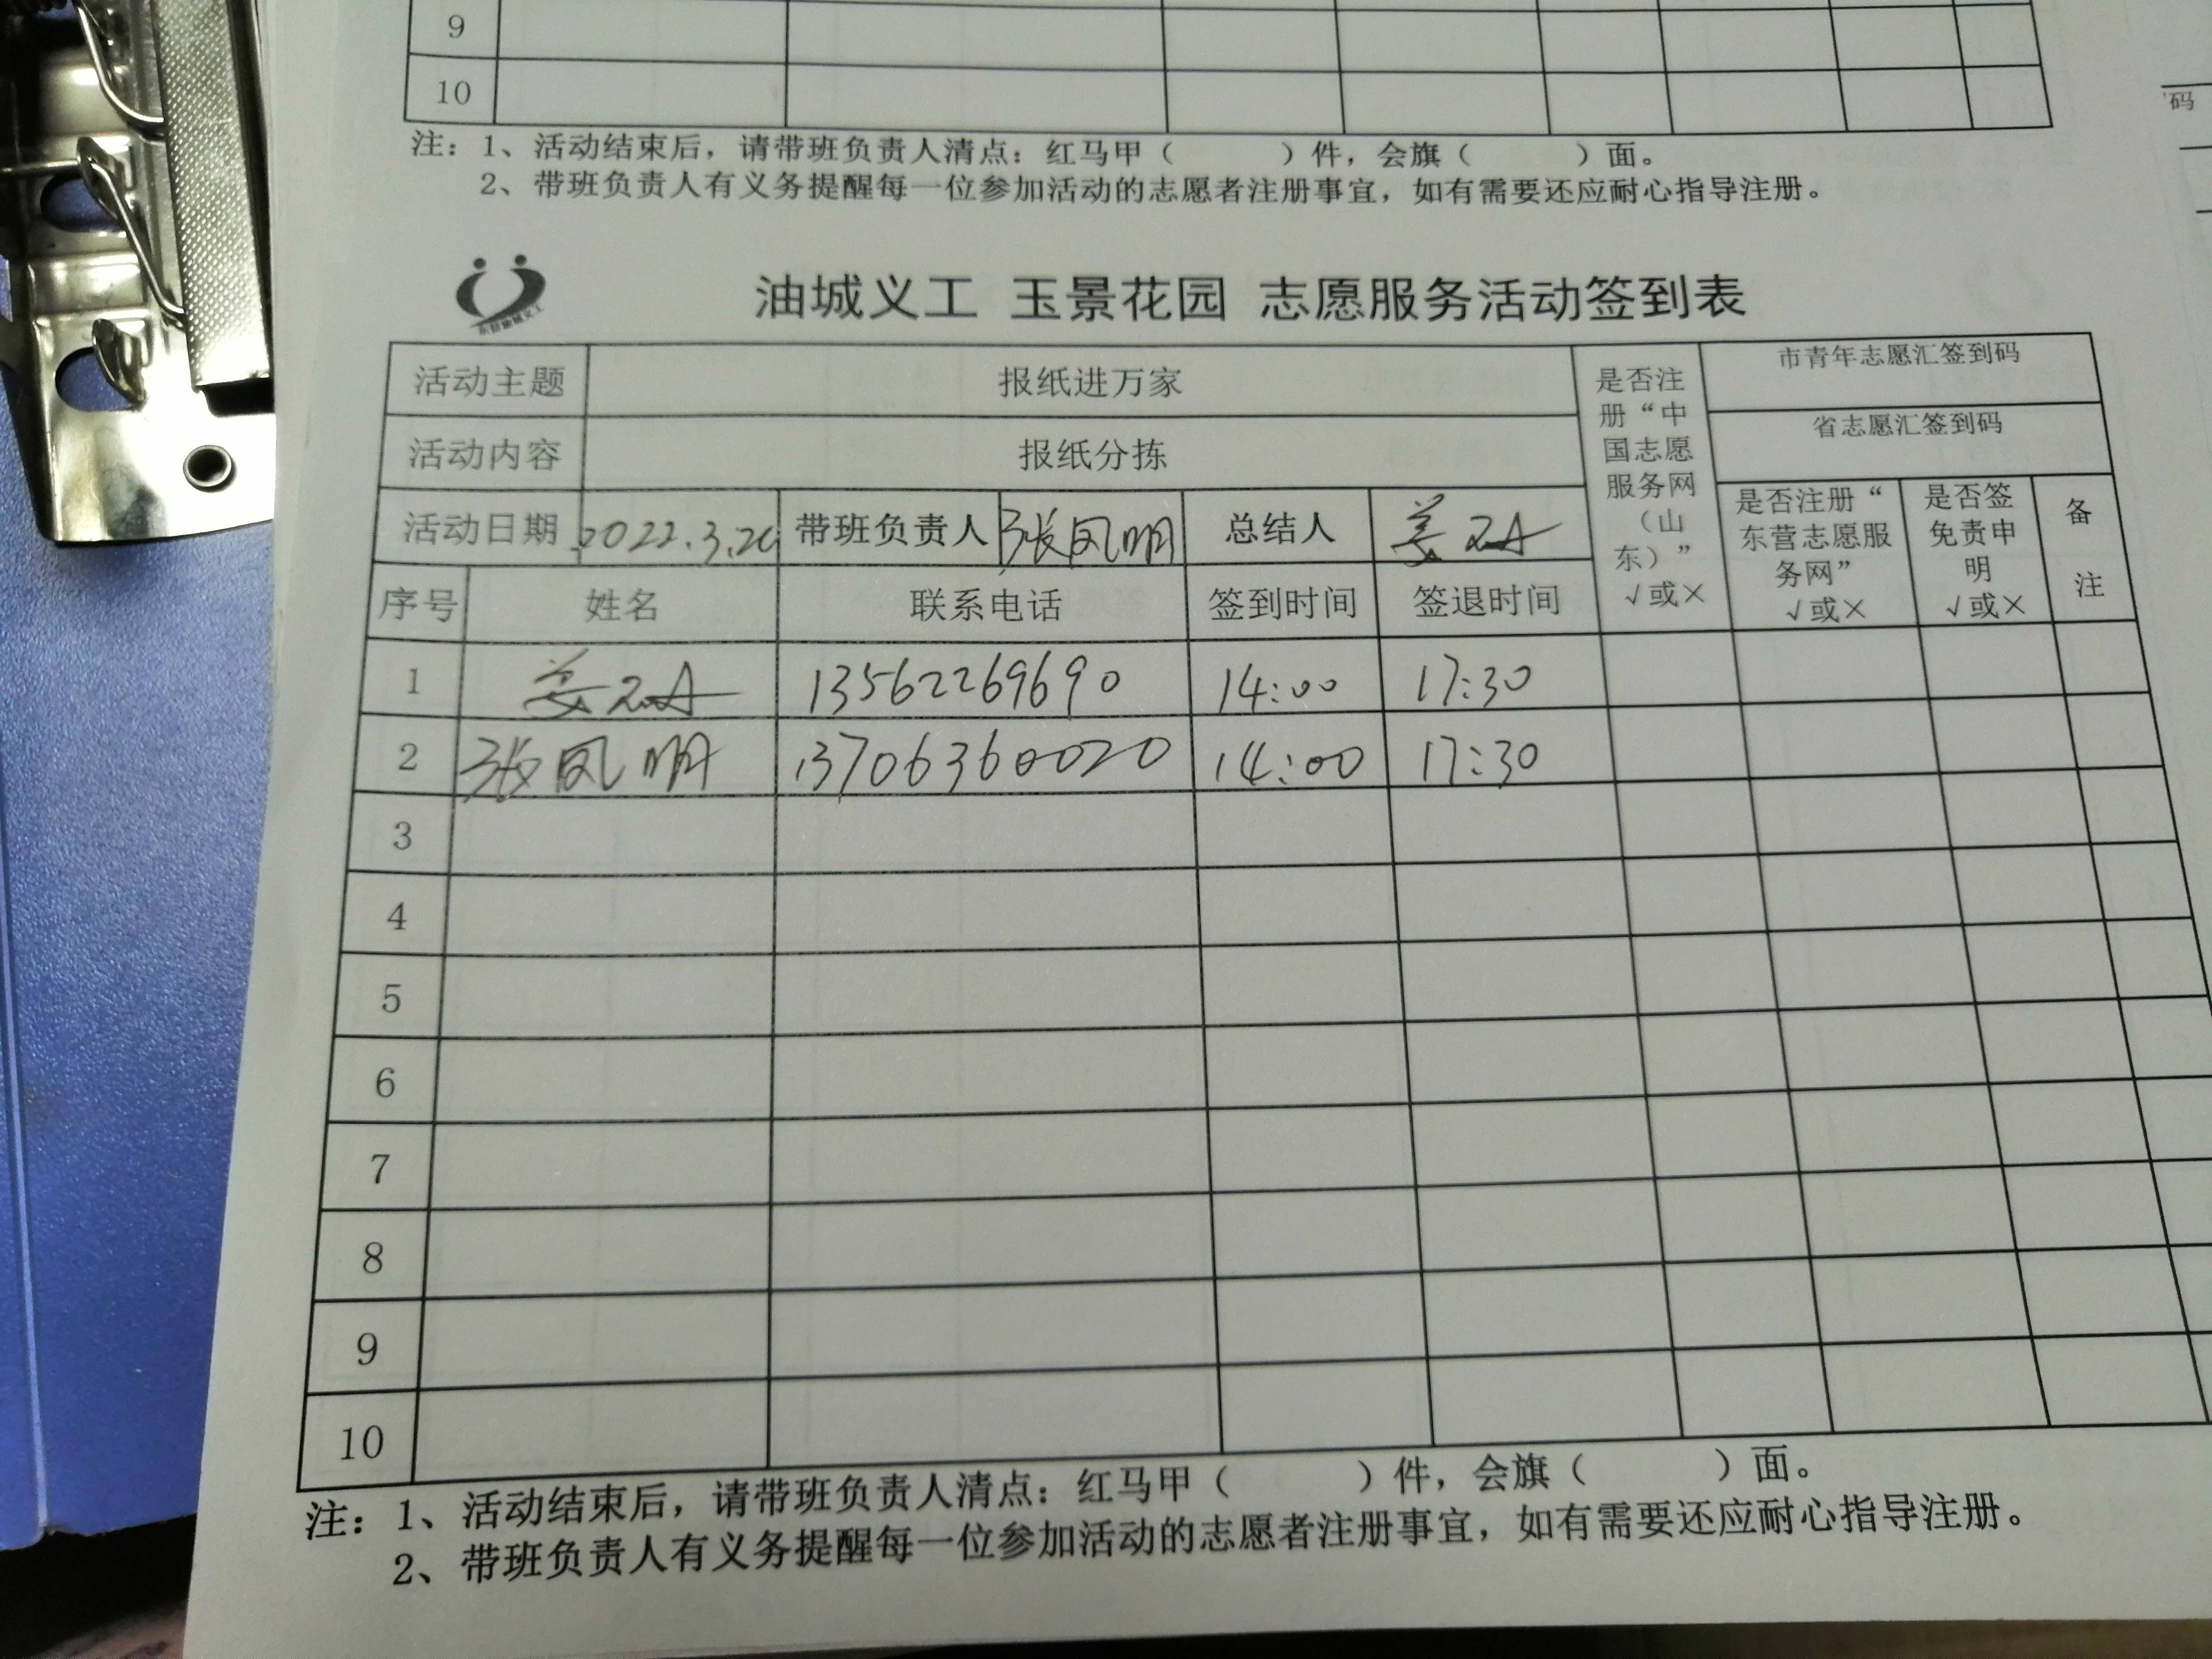 9
10
注：1、活动结束后，请带班负责人清点：红马甲（ ）件，会旗（ ）面。
2、带班负责人有义务提醒每一位参加活动的志愿者注册事宜，如有需要还应耐心指导注册。
码
油城义工 玉景花园 志愿服务活动签到表
活动主题 报纸进万家
活动内容 报纸分拣
是否注册“中国志愿服务网（山东）”√或×
市青年志愿汇签到码
省志愿汇签到码
活动日期 2022.3.20 带班负责人 张凤明 总结人 姜
是否注册“东营志愿服务网”√或×
是否签免责申明√或×
备注
序号 姓名 联系电话 签到时间 签退时间
1 姜 13562269690 14:00 17:30
2 张凤明 13706360020 14:00 17:30
3
4
5
6
7
8
9
10
注：1、活动结束后，请带班负责人清点：红马甲（ ）件，会旗（ ）面。
2、带班负责人有义务提醒每一位参加活动的志愿者注册事宜，如有需要还应耐心指导注册。